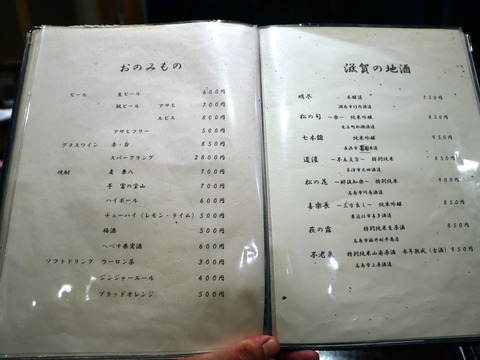 おのみもの
ビール 生ビール 600円
瓶ビール アサヒ 700円
ヱビス 800円
アサヒフリー 500円
グラスワイン 赤・白 850円
スパークリング 2800円
焼酎 麦 兼八 700円
芋 富の宝山 700円
ハイボール 600円
チューハイ(レモン・ライム) 500円
梅酒 500円
へべす果実酒 600円
ソフトドリンク ウーロン茶 300円
ジンジャーエール 400円
ブラッドオレンジ 500円
滋賀の地酒
本醸造 750円
松の司 ~楽~ 純米吟醸 850円
七本鎗 純米吟醸 950円
道灌 特別純米 850円
松の花 特別純米 900円
高島市川島酒造
喜楽長 純米吟醸 850円
東近江市喜多酒造
萩の露 特別純米生原酒 850円
高島市福井弥平商店
不老泉 特別純米山廃原酒 参年熟成(古酒) 950円
高島市上原酒造